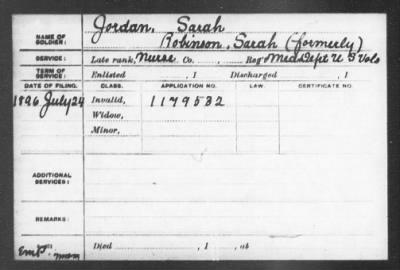 Jordan, Sarah
NAME OF SOLDIER: Robinson, Sarah (formerly)
SERVICE: Late rank, Nurse Co. , Reg't Med Dept U S Vols
TERM OF SERVICE: Enlisted , 1 Discharged , 1
DATE OF FILING. CLASS. APPLICATION NO. LAW. CERTIFICATE NO.
1896 July 24 Invalid, 1179532
Widow,
Minor,
ADDITIONAL SERVICES:
REMARKS:
Died , 1 , at